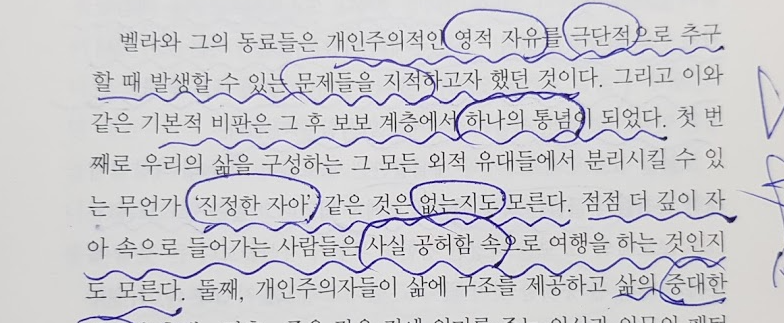 벨라와 그의 동료들은 개인주의적인 영적 자유를 극단적으로 추구
할 때 발생할 수 있는 문제들을 지적하고자 했던 것이다. 그리고 이와
같은 기본적 비판은 그 후 보보 계층에서 하나의 통념이 되었다. 첫 번
째로 우리의 삶을 구성하는 그 모든 외적 유대들에서 분리시킬 수 있
는 무언가 '진정한 자아' 같은 것은 없는지도 모른다. 점점 더 깊이 자
아 속으로 들어가는 사람들은 사실 공허함 속으로 여행을 하는 것인지
도 모른다. 둘째, 개인주의자들이 삶에 구조를 제공하고 삶의 중대한